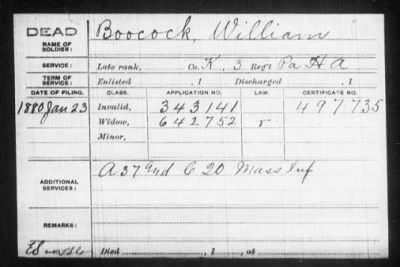 DEAD
NAME OF SOLDIER: Boocock, William
SERVICE: Late rank, Co. K, 3 Reg't Pa H A
TERM OF SERVICE: Enlisted , 1 Discharged , 1
DATE OF FILING. CLASS. APPLICATION NO. LAW. CERTIFICATE NO.
1880 Jan 23 Invalid, 343141 497735
Widow, 642752
Minor,
ADDITIONAL SERVICES: A 37 and C 20 Mass Inf
REMARKS:
Died , 1 , at